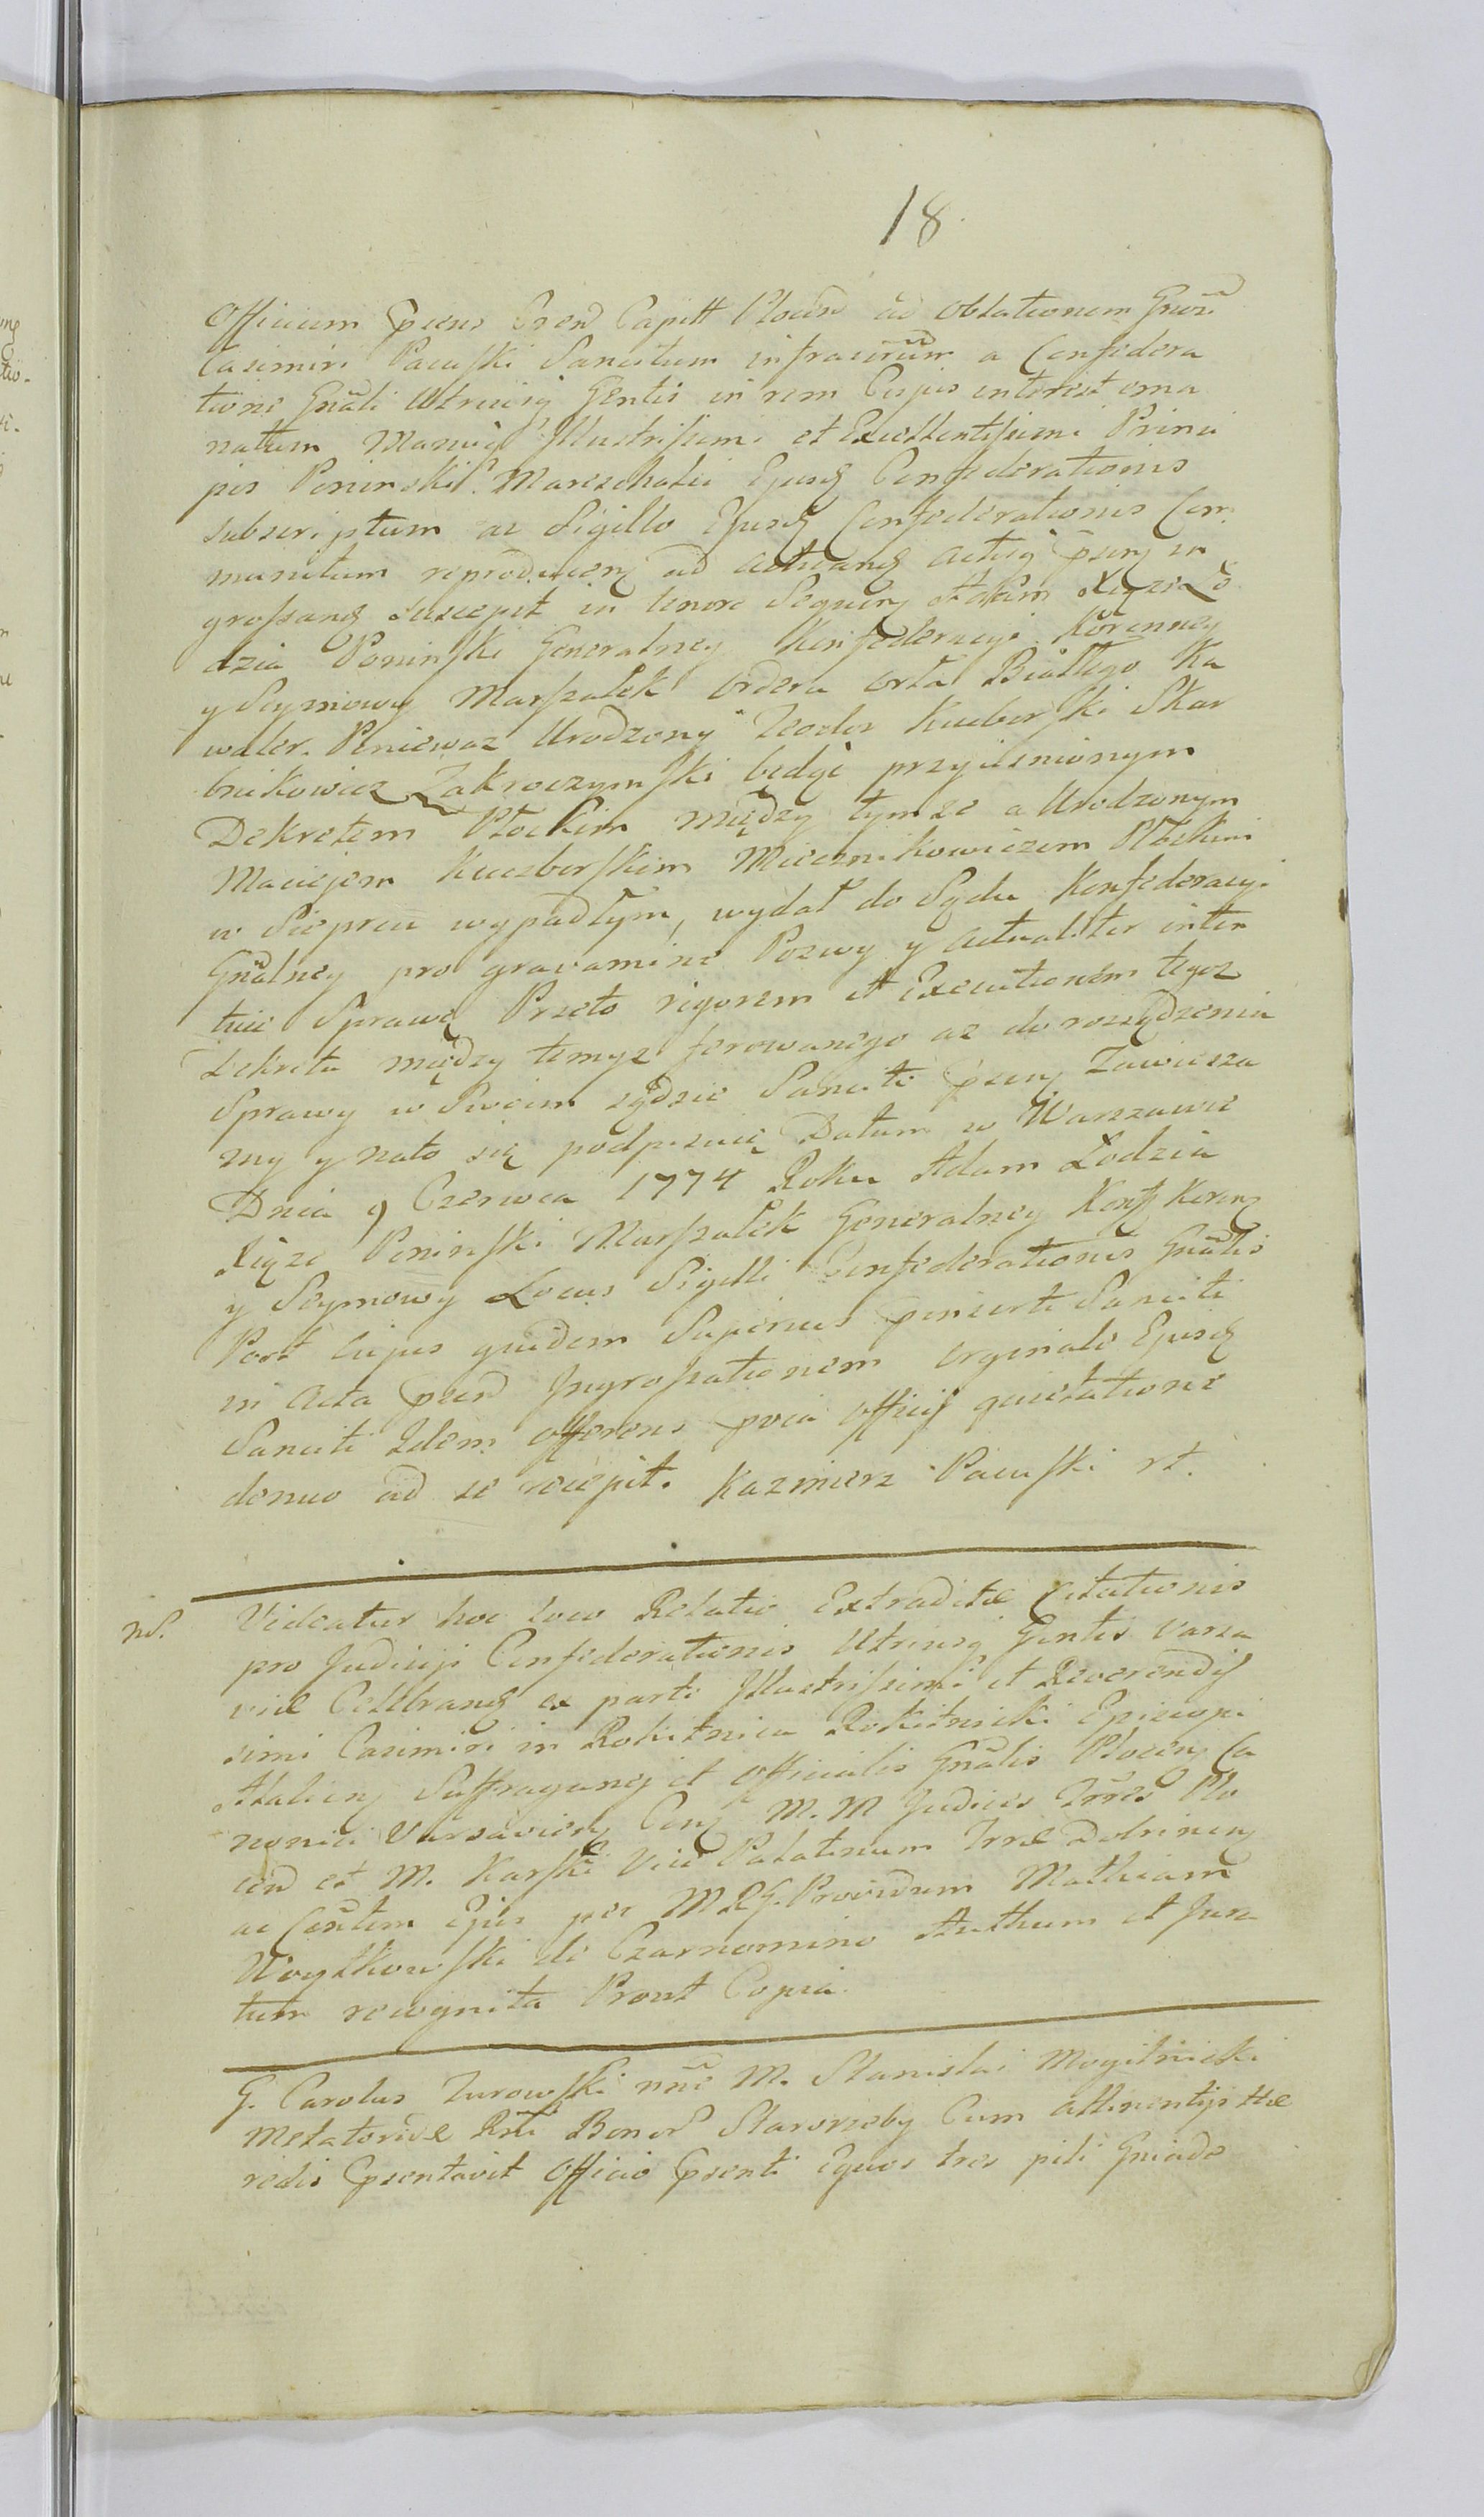 18.
Officium Psens Cren Capitt Plocen ad Oblationem Gnosi
Casimiri Pacuski Sancitum infrascrum a Confedera
tione Gnali Utriusq Gentis in rem Cujus interest ema
natum Manuq Illustrissimi et Excellentissimi Princi
pis Poninski Marszchalci Ejusd Confederationis
subscriptum ac Sigillo Ejusd Confederationis Com
munitum reproducen ad acticand actisq psen in
grossand suscepit in tenore Sequen Adam Xiąze Ło
dzia Poninski Generalney Konfederacyi Koronney
y Seymowy Marszałek Ordera Orła Białłego Ka
waler. Poniewaz Urodzony Teodor Kuczborski Skar
bnikowicz Zakroczymski będąc przyciśnionym
Dekretem Płockim między tymze a Urodzonym
Maciejem Kuczborskim Miecznikowiczem Płockim
w Sierpcu wypadłym, wydał do Sądu Konfederacyi
Gnalney pro gravamine Pozwy y actualiter inten
tuie Sprawę Przeto rigorem et Executionem tegoz
Dekretu między temyz ferowanego az do rozsądzenia
Sprawy w Swoim sądzie Sanciti psen Zawiesza
my y nato się podpisuię Datum w Warszawie
Dnia 9 Czerwca 1774 Roku Adam Łodzia
Xiąze Poninski Marszałek Generalney Konf Koron
y Seymowy Locus Sigilli Confederationis Gnalis
Post cujus quidem Superius pinserti Sanciti
in Acta psen Ingrossationem orginale Ejusd
Sanciti Idem offerens pvia officij quietatione
denuo ad se recepit. Kazimierz Pacuski rt.
Videatur hoc loco Relatio Extraditæ Citationis
pro Judicijs Confederationis Utriusq Gentis Varsa
viæ Celebrand ex parte Illustrissimi et Reverendis
simi Casimiri in Rokitnica Rokitnicki Episcopi
Suffraganej et Officialis Gnalis Plocen Ca
nonici Varsavien Con M. M Judices Trres Plo
cen et M. Karski Vice Palatinum Trræ Dobrinen
ac per M RG. Providum Mathiam
Woytkowski de Czarnomino Authum et Jura
tum recognita Prout Copia.
G. Carolus Zurowski nne M. Stanislai Mogilnicki
Metatoridæ Bonor Starorzeby Cum attinentijs Hæ
redis Psentavit Officio Psenti Equos tres pili Gniade